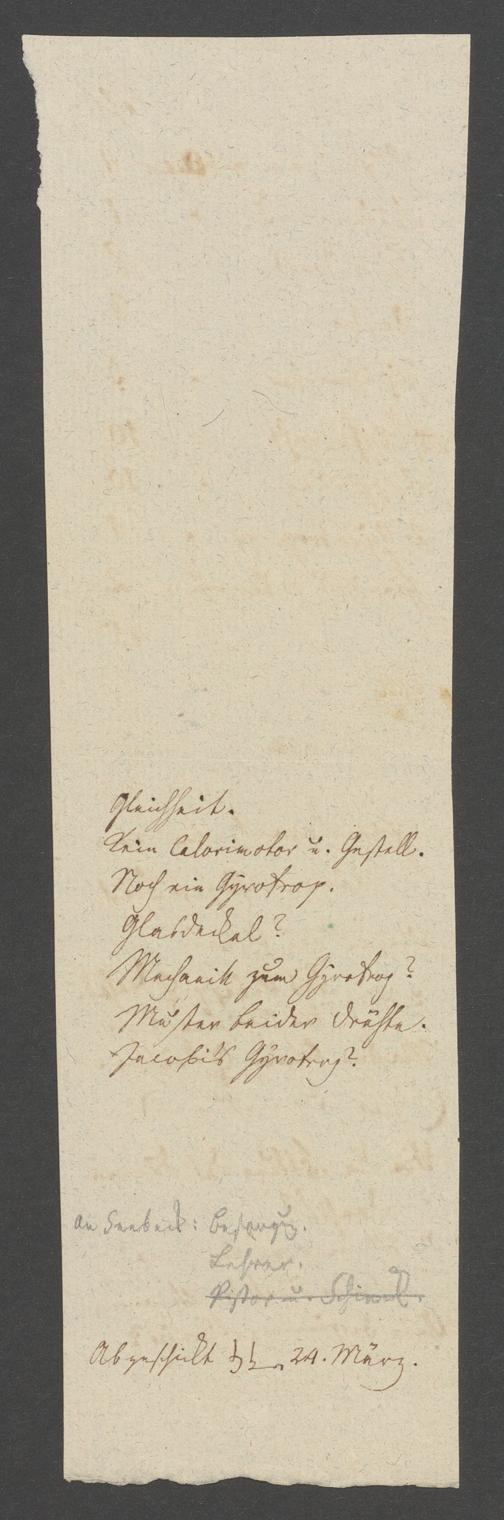 Gleichheit.
Kein Calorimotor u. Gestell.
Noch ein Gyrotrop.
Glasdeckel?
Mechanik zum Gyrotrop?
Muster beider Drähte.
Jacobi's Gyrotrop?
An Seebeck:
Lehrer.
Pistor u. Schieck.
Abgeschickt 24. März.